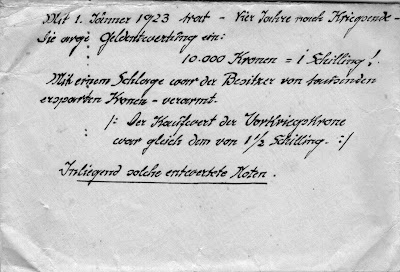 Mit 1. Jänner 1923 trat - vier Jahre nach Kriegsende -
die arge Geldentwertung ein:
10.000 Kronen = 1 Schilling!
Mit einem Schlage war der Besitzer von tausenden
ersparten Kronen - verarmt.
/: Der Kaufwert der Vorkriegskrone
war gleich dem von 1½ Schilling. :/
Inliegend solche entwertete Noten.